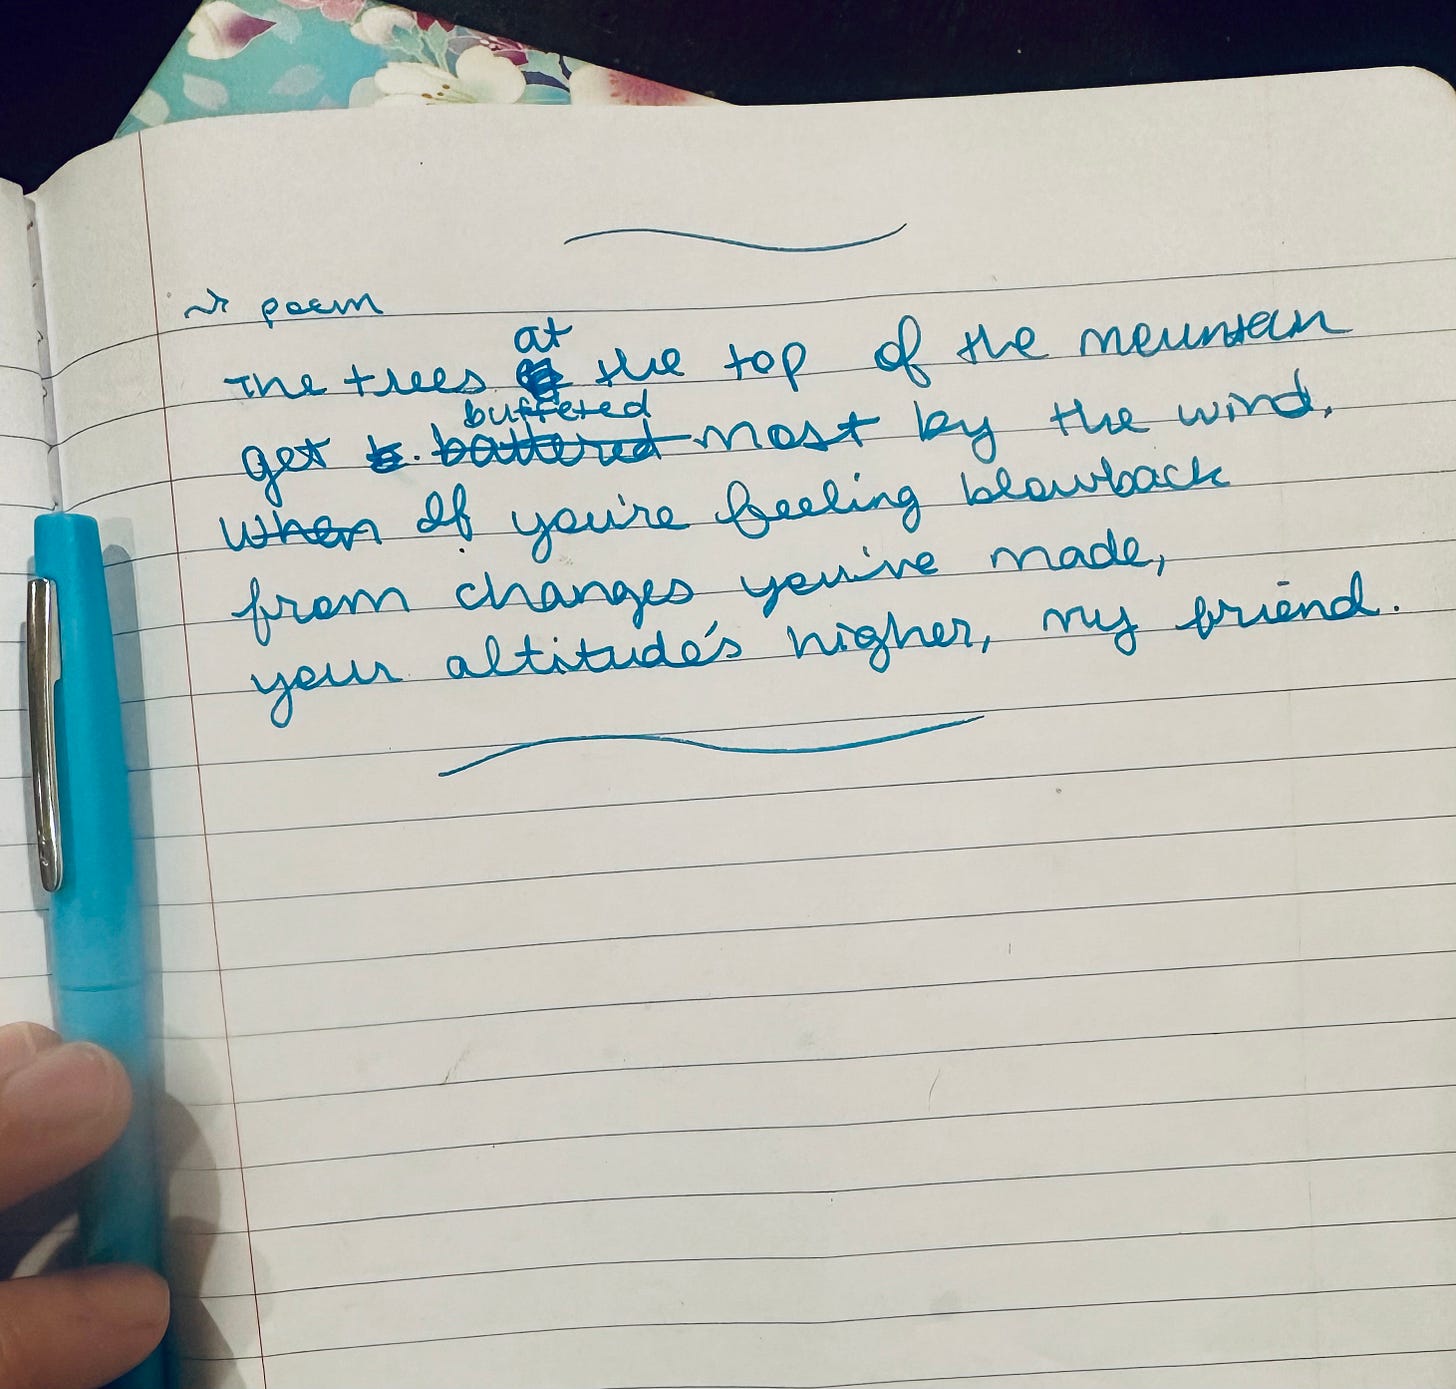 poem
at
The trees the top of the mountain
buffered
get battered most by the wind.
When If you're feeling blowback
from changes you've made,
your altitude's higher, my friend.